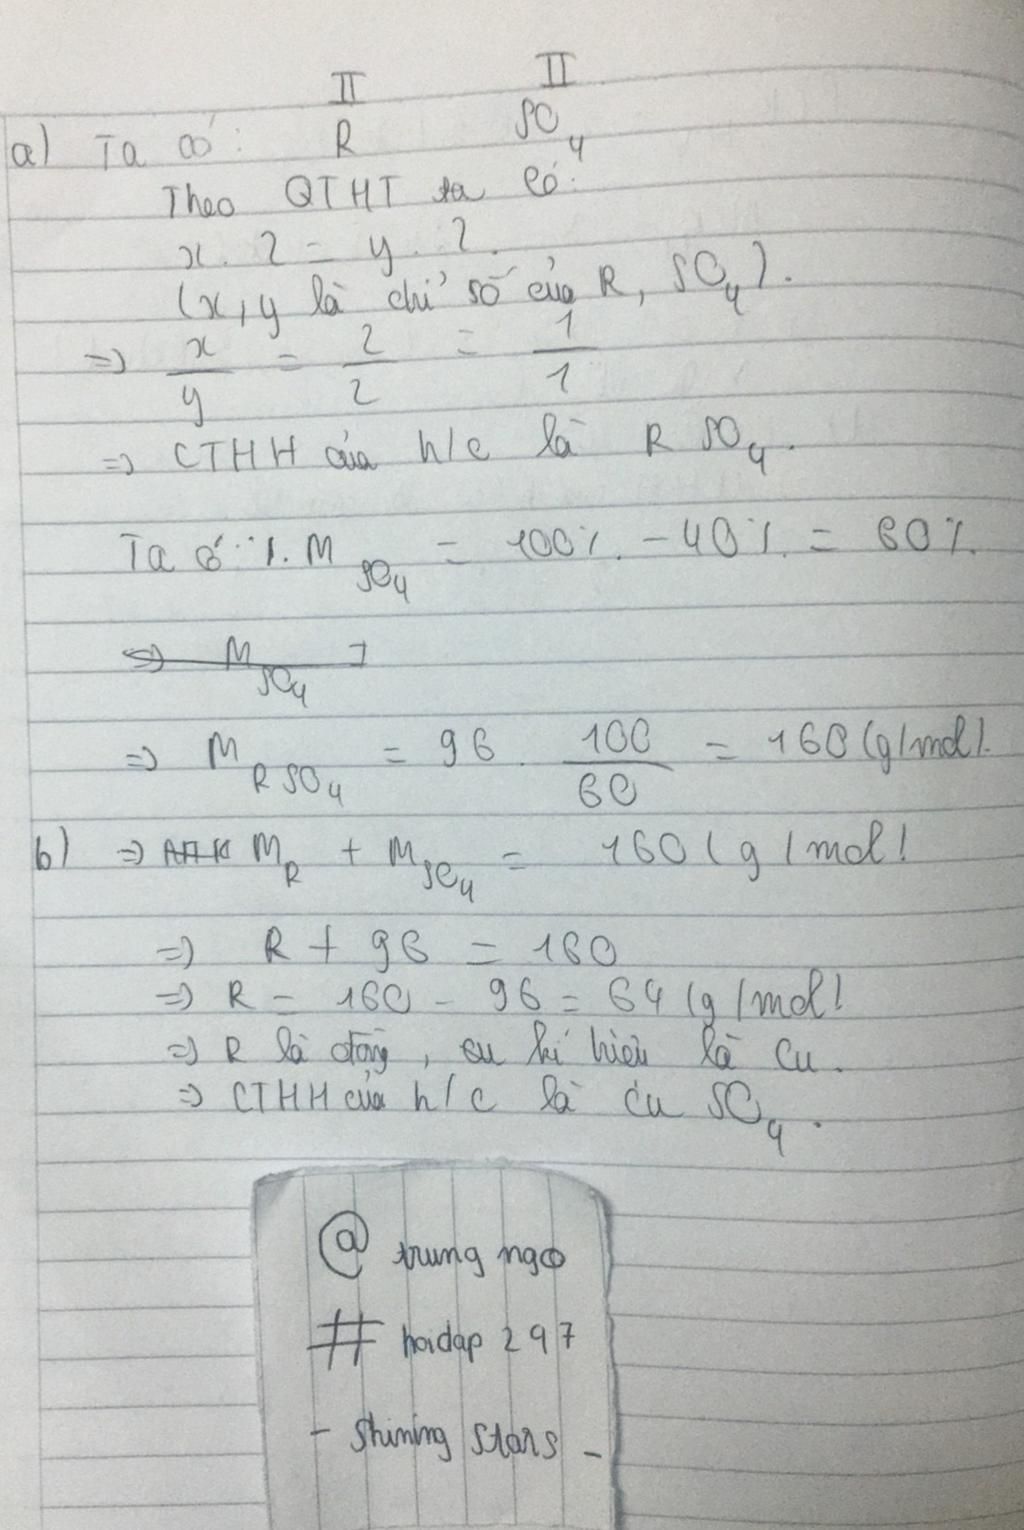 II II
a) Ta có: R SO4
Theo QTHT ta có:
x. 2 = y. 2.
(x, y là chỉ số của R, SO4).
=> x/y = 2/2 = 1/1
=> CTHH của h/c là R SO4.
Ta có: %M SO4 = 100% - 40% = 60%.
=> M SO4 =
=> M R SO4 = 96 . 100/60 = 160 (g/mol).
b) => M R + M SO4 = 160 (g/mol)
=> R + 96 = 160
=> R = 160 - 96 = 64 (g/mol)
=> R là đồng, kí hiệu là Cu.
=> CTHH của h/c là Cu SO4.
@ trung ngo
# hoidap 297
- Shining stars -